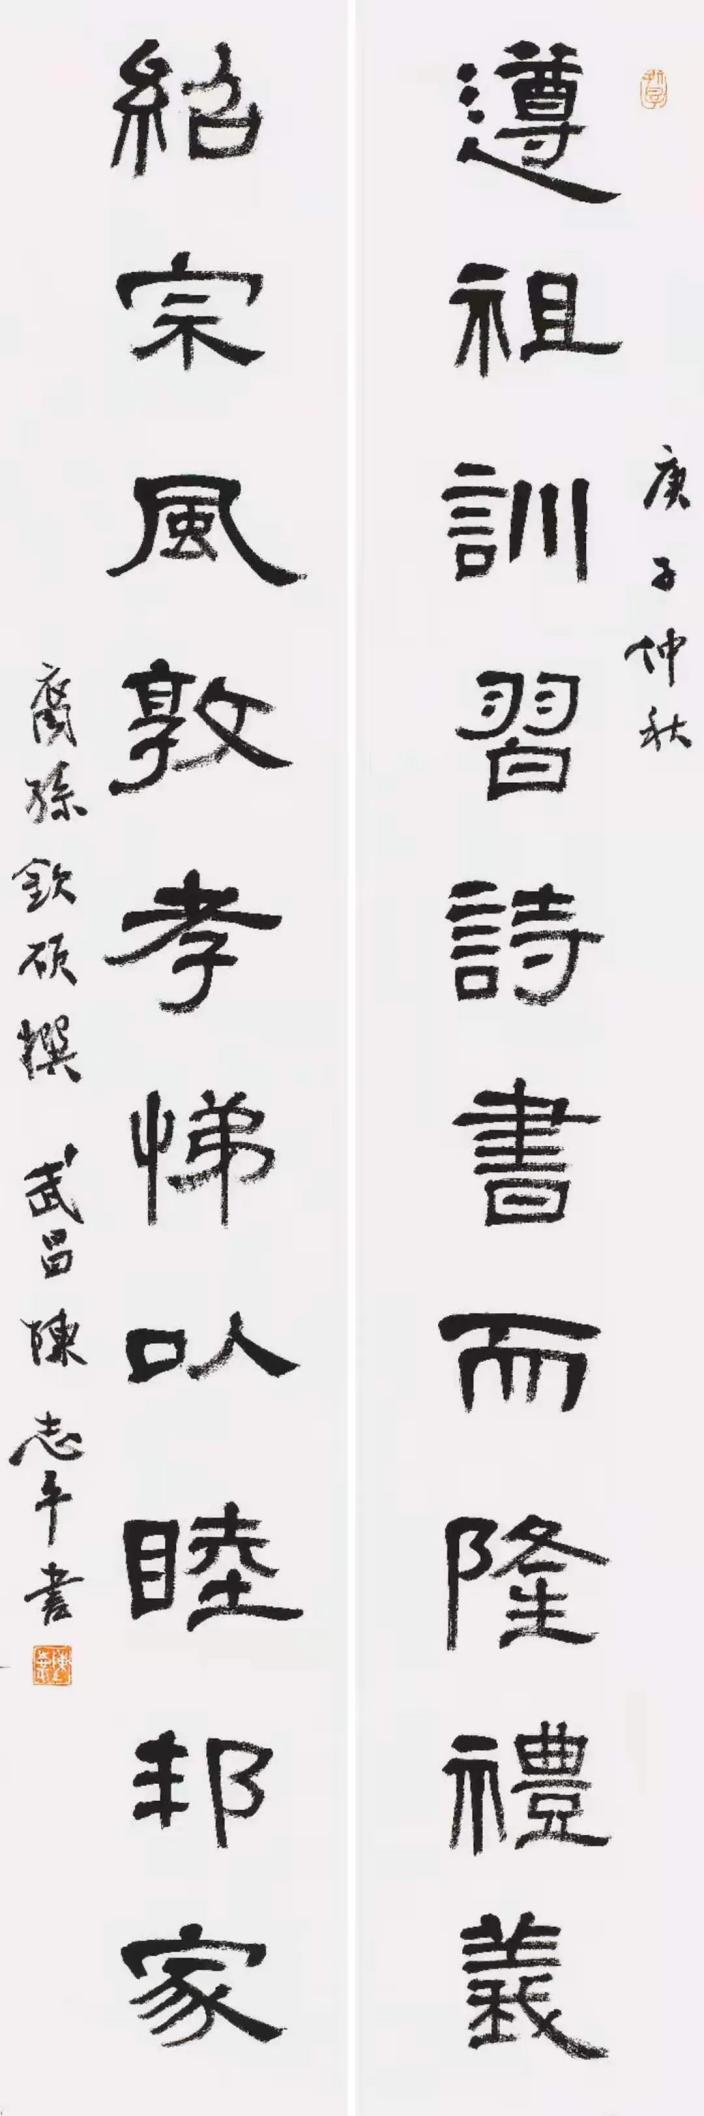 庚子仲秋
遵祖訓習詩書而隆禮義
紹宗風敦孝悌以睦邦家
裔孫欽碩撰 武昌陳志平書